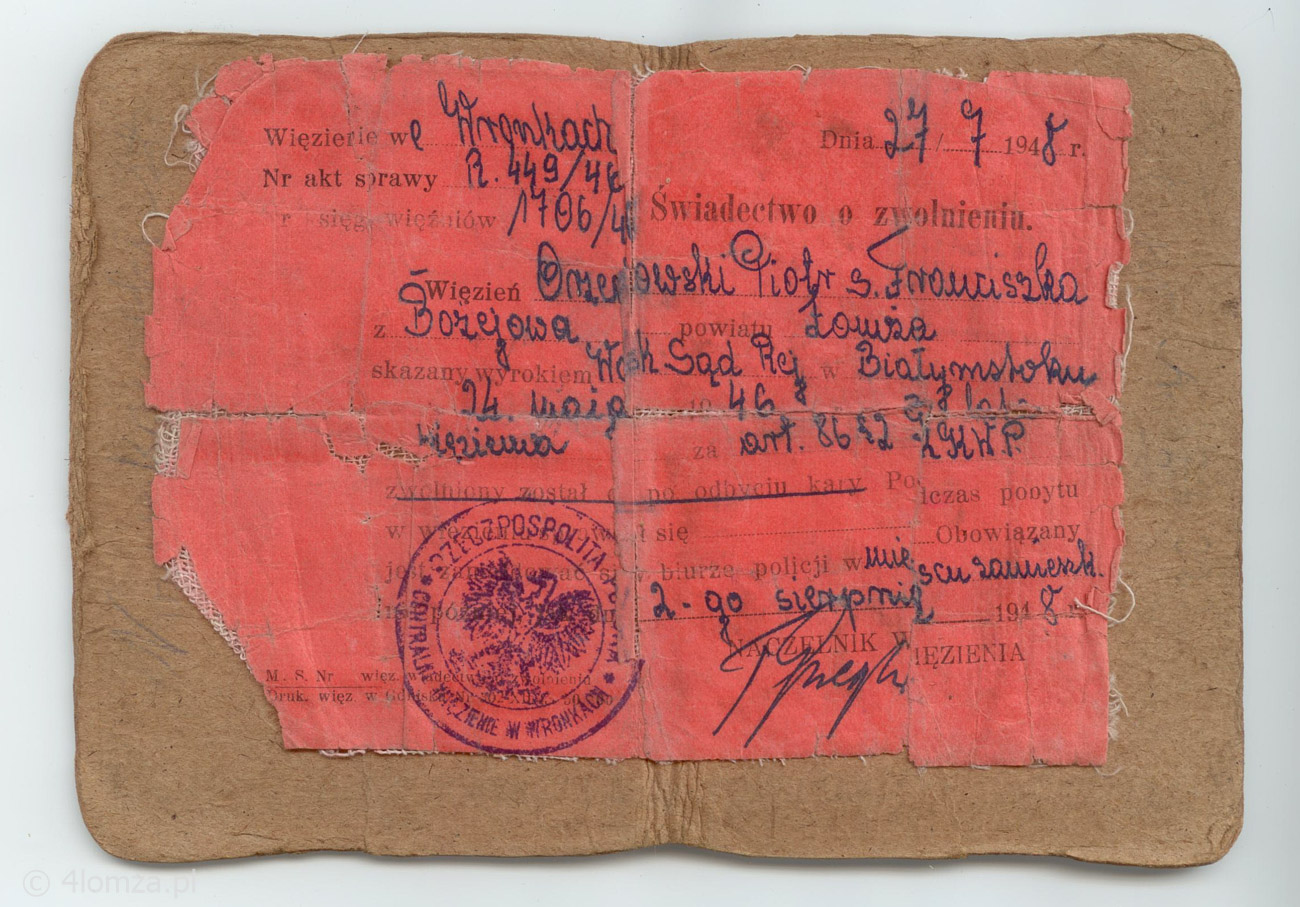 Więzienie we Wronkach Dnia 27 / 7 1948 r.
Nr akt sprawy R. 449/46
sięg. więźniów 1706/4
Świadectwo o zwolnieniu.
Więzień Piotr s. Franciszka
z Bożejowa powiatu Łomża
skazany wyrokiem Wojsk Sąd Rej w Białymstoku
24. maja 19 46
więzienia za art. 86 § 2 KKWP.
zwolniony został po odbyciu kary Podczas pobytu
w się Obowiązany
jest w biurze policji w miejscu zamieszk.
2-go sierpnia 1948 r.
NACZELNIK WIĘZIENIA
RZECZPOSPOLITA POLSKA
CENTRALNE WIĘZIENIE W WRONKACH
M. S. Nr więz. zwolnienia
Druk. więz. w
© 4lomza.pl